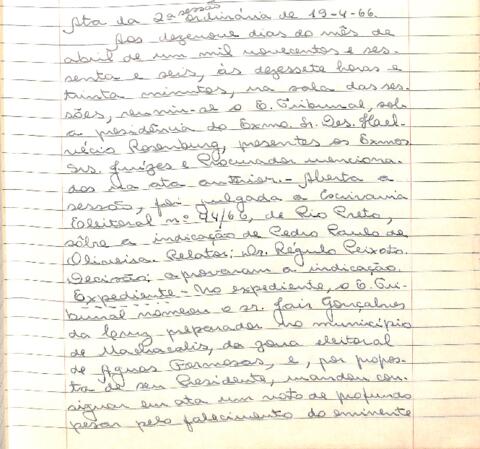 Ata da 2ª sessão ordinária de 19-4-66.
Aos dezenove dias do mês de
abril de um mil novecentos e ses-
senta e seis, às dezessete horas e
trinta minutos, na sala das ses-
sões, reuniu-se o E. Tribunal, sob
a presidência do Exmo. Sr. Des. Hel-
vécio Rosenburg, presentes os Exmos
Srs. Juízes e Procurador menciona-
dos na ata anterior. - Aberta a
sessão, foi julgada a Escrivania
Eleitoral nº 94/66, de Rio Preto,
sôbre a indicação de Pedro Paulo de
Oliveira. Relator: Dr. Régulo Peixoto.
Decisão: aprovaram a indicação.
Expediente - No expediente, o E. Tri-
bunal nomeou o sr. Jair Gonçalves
da Cruz preparador no município
de Machacalis, da zona eleitoral
de Águas Formosas, e, por propos-
ta de seu Presidente, mandou con-
signar em ata um voto de profundo
pesar pelo falecimento do eminente